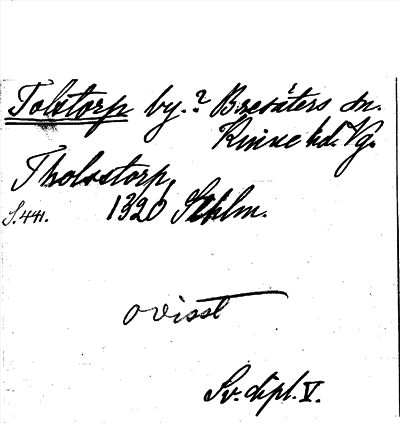 Tolstorp by.? Bresäters sn.
Kinne hd. Vg.
Tholxstorp
S. 441. 1320 Sthlm.
ovisst
Sv. dipl. V.